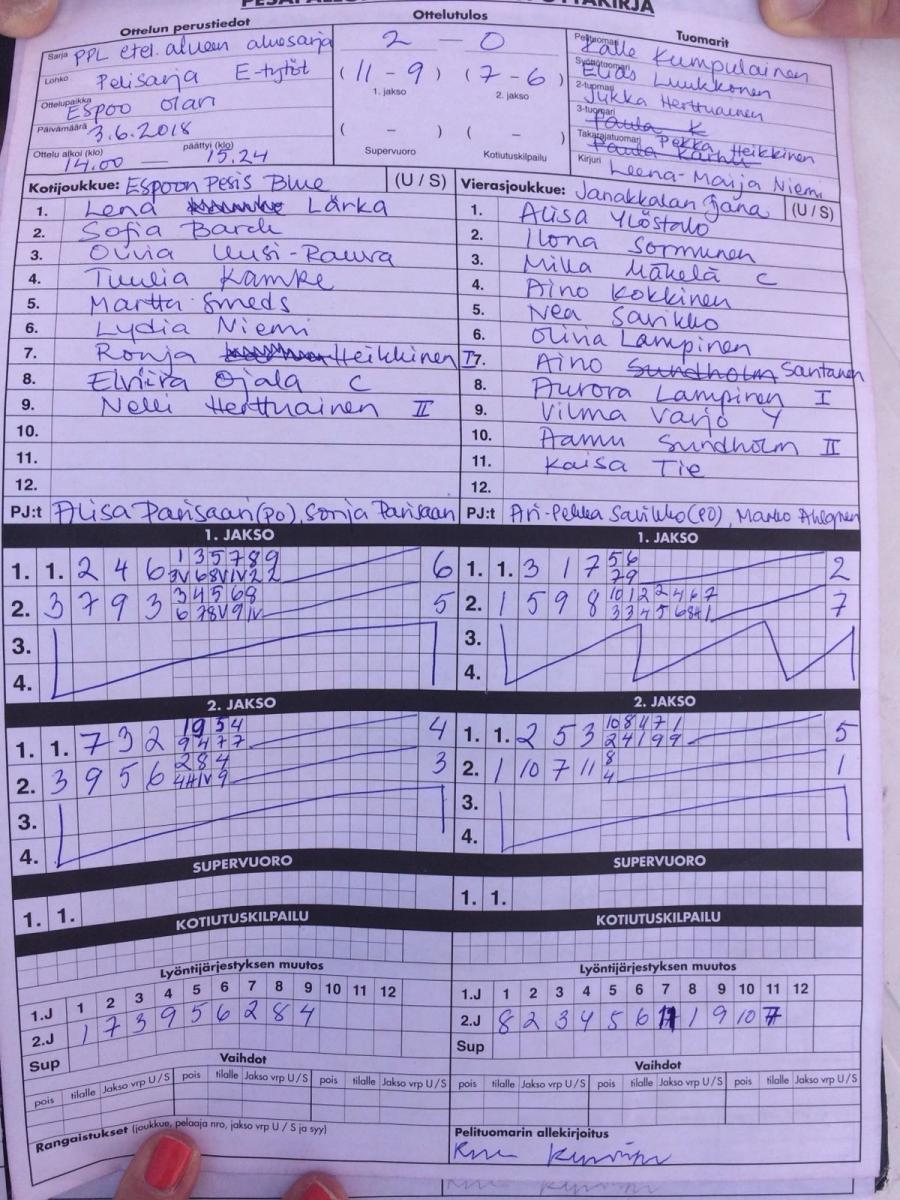 Ottelun perustiedot
Ottelutulos
Tuomarit
Sarja PPL etel. alueen aluesarja
2 - 0
Pelituomari Kalle Kumpulainen
Lohko Pelisarja E-tytöt
(11 - 9) (7 - 6)
1. jakso 2. jakso
Syöttötuomari Elias Luukkonen
Ottelupaikka Espoo Olari
2-tuomari Jukka Herttuainen
3-tuomari Paula K
Päivämäärä 3.6.2018
( - ) ( - )
Takarajatuomari Paula Karhu Pekka Heikkinen
Ottelu alkoi (klo) päättyi (klo)
14.00 — 15.24
Supervuoro Kotiutuskilpailu
Kirjuri Leena-Maija Niemi
Kotijoukkue: Espoon Pesis Blue (U / S)
1. Lena Lärka
2. Sofia Barck
3. Olivia Uusi-Rauva
4. Tuulia Kamke
5. Martta Smeds
6. Lydia Niemi
7. Ronja Heikkinen I
8. Elviira Ojala C
9. Nelli Herttuainen II
10.
11.
12.
PJ:t Alisa Parisaari (PO), Sonja Parisaari
Vierasjoukkue: Janakkalan Jana (U / S)
1. Alisa Ylöstalo
2. Ilona Sormunen
3. Milla Mäkelä C
4. Aino Kokkinen
5. Nea Savikko
6. Olivia Lampinen
7. Aino Sundholm Santanen
8. Aurora Lampinen I
9. Vilma Varjo Y
10. Aamu Sundholm II
11. Kaisa Tie
12.
PJ:t Ari-Pekka Savikko (PO), Marko Ahlgren
1. JAKSO
1. 1. 2 4 6 1 3 5 7 8 9 6
2. 3 7 9 3 3 4 5 6 8 5
3.
4.
1. JAKSO
1. 1. 3 1 7 5 6 2
7 9
2. 1 5 9 8 10 1 2 2 4 6 7 7
3.
4.
2. JAKSO
1. 1. 7 3 2 1 9 5 4 4
9 4 7 7
2. 3 9 5 6 2 8 4 3
3.
4.
2. JAKSO
1. 1. 2 5 3 10 8 4 7 1 5
2 4 1 9 9
2. 1 10 7 11 8 1
4
3.
4.
SUPERVUORO
1. 1.
SUPERVUORO
1. 1.
KOTIUTUSKILPAILU
KOTIUTUSKILPAILU
Lyöntijärjestyksen muutos
1.J 1 2 3 4 5 6 7 8 9 10 11 12
2.J 1 7 3 9 5 6 2 8 4
Sup
Lyöntijärjestyksen muutos
1.J 1 2 3 4 5 6 7 8 9 10 11 12
2.J 8 2 3 4 5 6 11 1 9 10 7
Sup
Vaihdot
pois tilalle Jakso vrp U / S pois tilalle Jakso vrp U / S pois tilalle Jakso vrp U / S
Vaihdot
pois tilalle Jakso vrp U / S pois tilalle Jakso vrp U / S pois tilalle Jakso vrp U / S
Rangaistukset (joukkue, pelaaja nro, jakso vrp U / S ja syy)
Pelituomarin allekirjoitus